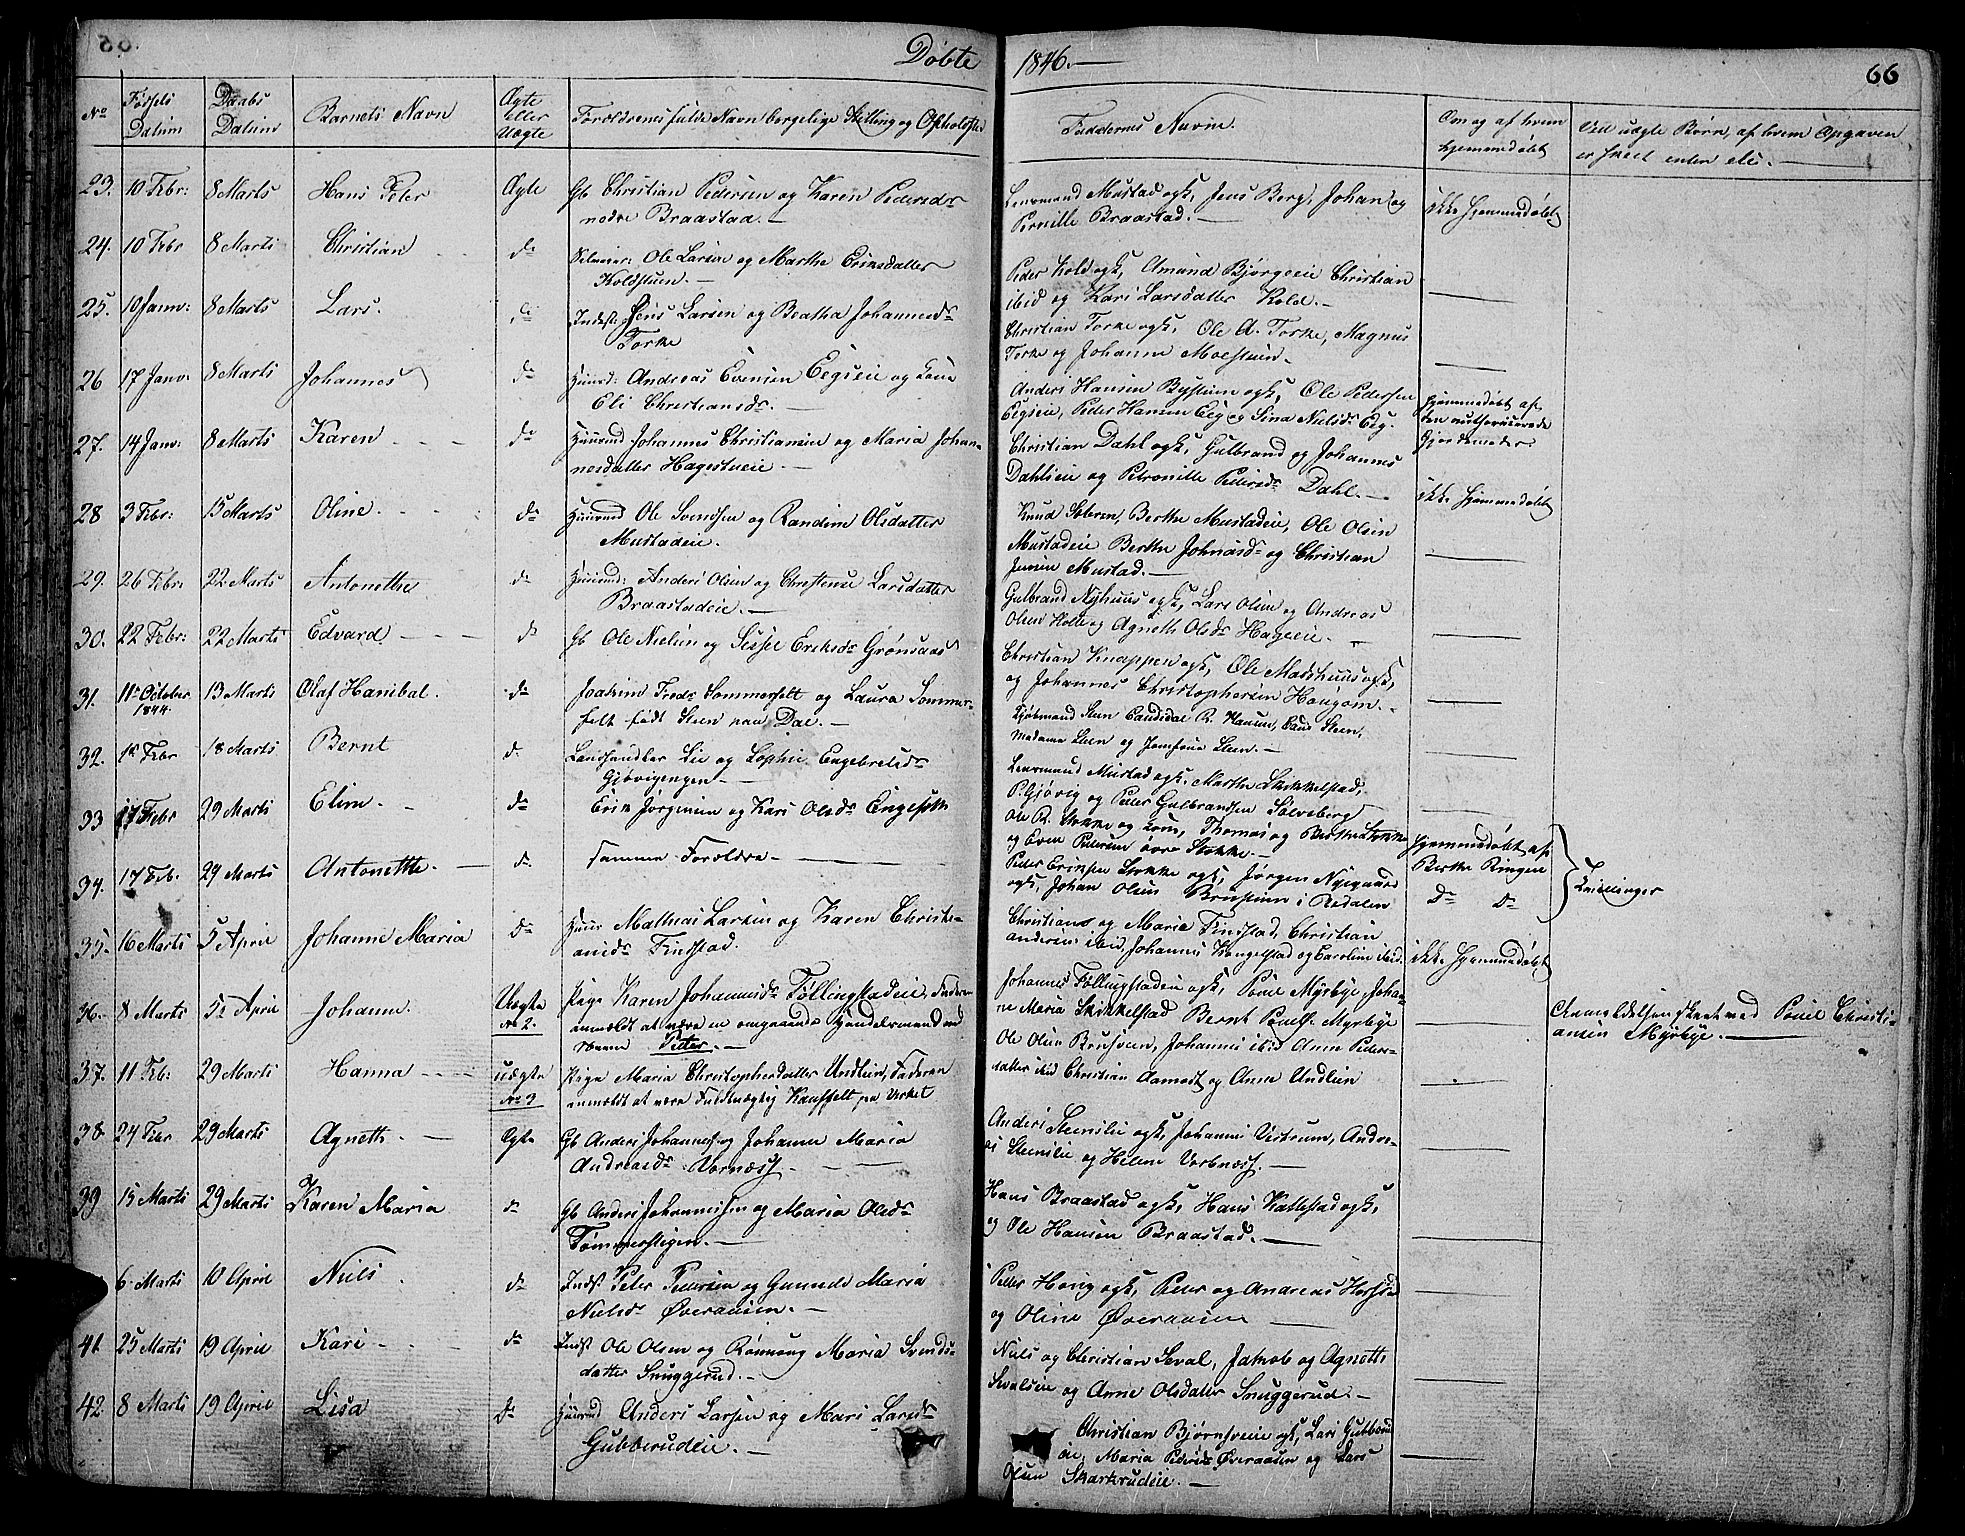 Døbte 1846.— 66
No Fødsels Datum Daabs Datum Barnets Navn Ægte eller Uægte Forældrenes fulde Navn borgelige Stilling og Opholdssted Faddernes Navne. Om og af hvem hjemmedøbt Ved uægte Børn, af hvem Opgaven er skeet enten ele.—
23. 10 Febr: 8 Marts Hans Peter Ægte Gb Christian Pedersen og Karen Pedersdr
nedre Braastad.—
Lensmand Mustad ogk, Jens Berg, Johan og
Pernille Braastad.—
ikke hjemmedøbt
24. 10 Febr 8 Marts Christian do Ole Larsen og Marthe Eriksdatter
Koldstuen.—
Peder Kold ogk, Amund Bjørgeeie Christian
ibid og Kari Larsdatter Kold.—
25. 10 Janv: 8 Marts Lars. do Inderst: Jens Larsen og Beatha Johannesdr
Torke
Christian Torke ogk, Ole A. Torke, Magnus
Torke og Johanne Moestuen.
26 17 Janv. 8 Marts Johannes do Huusd: Andreas Evensen Eegseie og Kone
Eli Christiansdr.—
Anders Hansen Bystuen ogk, Ole Pedersen
Eegseie, Peder Hansen Eeg og Sina Nielsdr Eeg.
hjemmedøbt af
den authoriserede
Gjordemoder
27. 14 Janv: 8 Marts Karen do Huusmd Johannes Christiansen og Maria Johan-
nesdatter Hagestueie.—
Christian Dahl ogk, Gulbrand og Johannes
Dahlseie og Petronille Pedersdr Dahl.—
ikke hjemmedøbt
28 3 Febr: 15 Marts Oline. do Huusmd Ole Svendsen og Randine Olsdatter
Mustadeie.
Knud Sateren, Berthe Mustadeie, Ole Olsen
Mustadeie Berthe Johnsdr og Christian
Jensen Mustad.—
29. 26 Febr: 22 Marts Antonethe do Huusmd: Anders Olsen og Christense Larsdatter
Braastadeie.—
Gulbrand Nyhuus ogk, Lars Olsen og Andreas
Olsen Holte og Agneth Olsdr Hageeie.—
30. 22 Febr: 22 Marts Edvard do Gb Ole Nielsen og Sissel Eriksdr Grønsaas
Christian Knappen ogk, Ole Madshuus ogk,
og Johannes Christophersen Haugom.
31. 11te October
1844. 13 Marts Olaf Hanibal. do Joachim Fredr Sommerfelt og Laura Sommer-
felt født Steen paa Dal.—
Kjøbmand Steen Candidat R. Hansen, Steen,
Madame Steen og Jomfrue Steen.—
32. 18 Febr 18 Marts Bernt do Landhandler Lie og Sophie Engebretsdr
Gjøvigengen.—
Lensmand Mustad ogk. Marthe Skikkelstad,
P. Gjøvig og Peder Gulbrandsen Sølvsberg
33 17 Febr 29 Marts Eline. do Erik Jørgensen og Kari Olsdr Engeseth
Ole R. Stokke og Kone, Thomas og Berthe Stokke
og Even Pedersen øvre Stokke.—
hjemmedøbt af
Berthe Ringen
34. 17 Feb. 29 Marts Antonette.— do samme Forældre
Peder Eriksen Stokke ogk, Jørgen Nygaard
ogk, Johan Olsen i Redalen
do do
Tvillinger
35. 16 Marts 5 April Johanne Maria do Huusm Mathias Larsen og Karen Christi-
ansdr Findstad.
Christians og Marie Findstad, Christian
Andersen ibid, Johannes Kongelstad og Caroline ibid.
ikke hjemmedøbt
36. 8 Marts 5te April Johanne. Uægte
No 2. Pige Karen Johannesdr Føllingstadeie, Faderen
anmeldt at være en omgaaende Handelsmand ved
Navn Petter.—
Johannes Føllingstadeie ogk, Poul Myrbye, Joha-
ne Maria Skikkelstad Bernt Pouls. Myrbye
Anmeldelsen skeet ved Poul Christi-
ansen Myrbye.—
37. 11 Feb: 29 Marts Hanna uægte
No 3 Pige Maria Christophersdatter Undlien, Faderen
anmeldt at være
Ole Olsen Brusveen, Johannes ibid Anne Peders-
datter ibid Christian Aamodt og Anne Undlien
38. 24 Febr 29 Marts Agneth. Ægte Gb Anders Johannes. og Johanne Maria
Andreasdr Vornæss.
Anders Steenslie ogk, Johannes Vestrum, Andre-
as Steenslie og Helene Vorbnæss.—
39 15 Marts 29 Marts Karen Maria do Gb Anders Johannessen og Maria Olsdr
Tømmerstigen.—
Hans Braastad ogk, Hans Kallestad ogk,
og Ole Hansen Braastad.—
6 Marts 10 April Niels do Indst Peter Pedersen og Gunnild Maria
Nielsdr Øveraasen.—
Peder Houg ogk, Peder og Andreas
og Oline Øveraasen
41. 25 Marts 19 April Kari do Indst Ole Olsen og Rønnoug Maria Svends-
datter Snuggerud.—
Niels og Christian Seval, Jakob og Agneth
Sevalseie og Anne Olsdatter Snuggerud.—
42 8 Marts 19 April Lisa do Huusmd Anders Larsen og Mari Larsdr
Gubberudeie.—
Christian Bjørnsveeie ogk, Lars Gubberud-
eie, Maria Pedersdr Øveraasen og Lars
Olsen Skarkrudeie.—